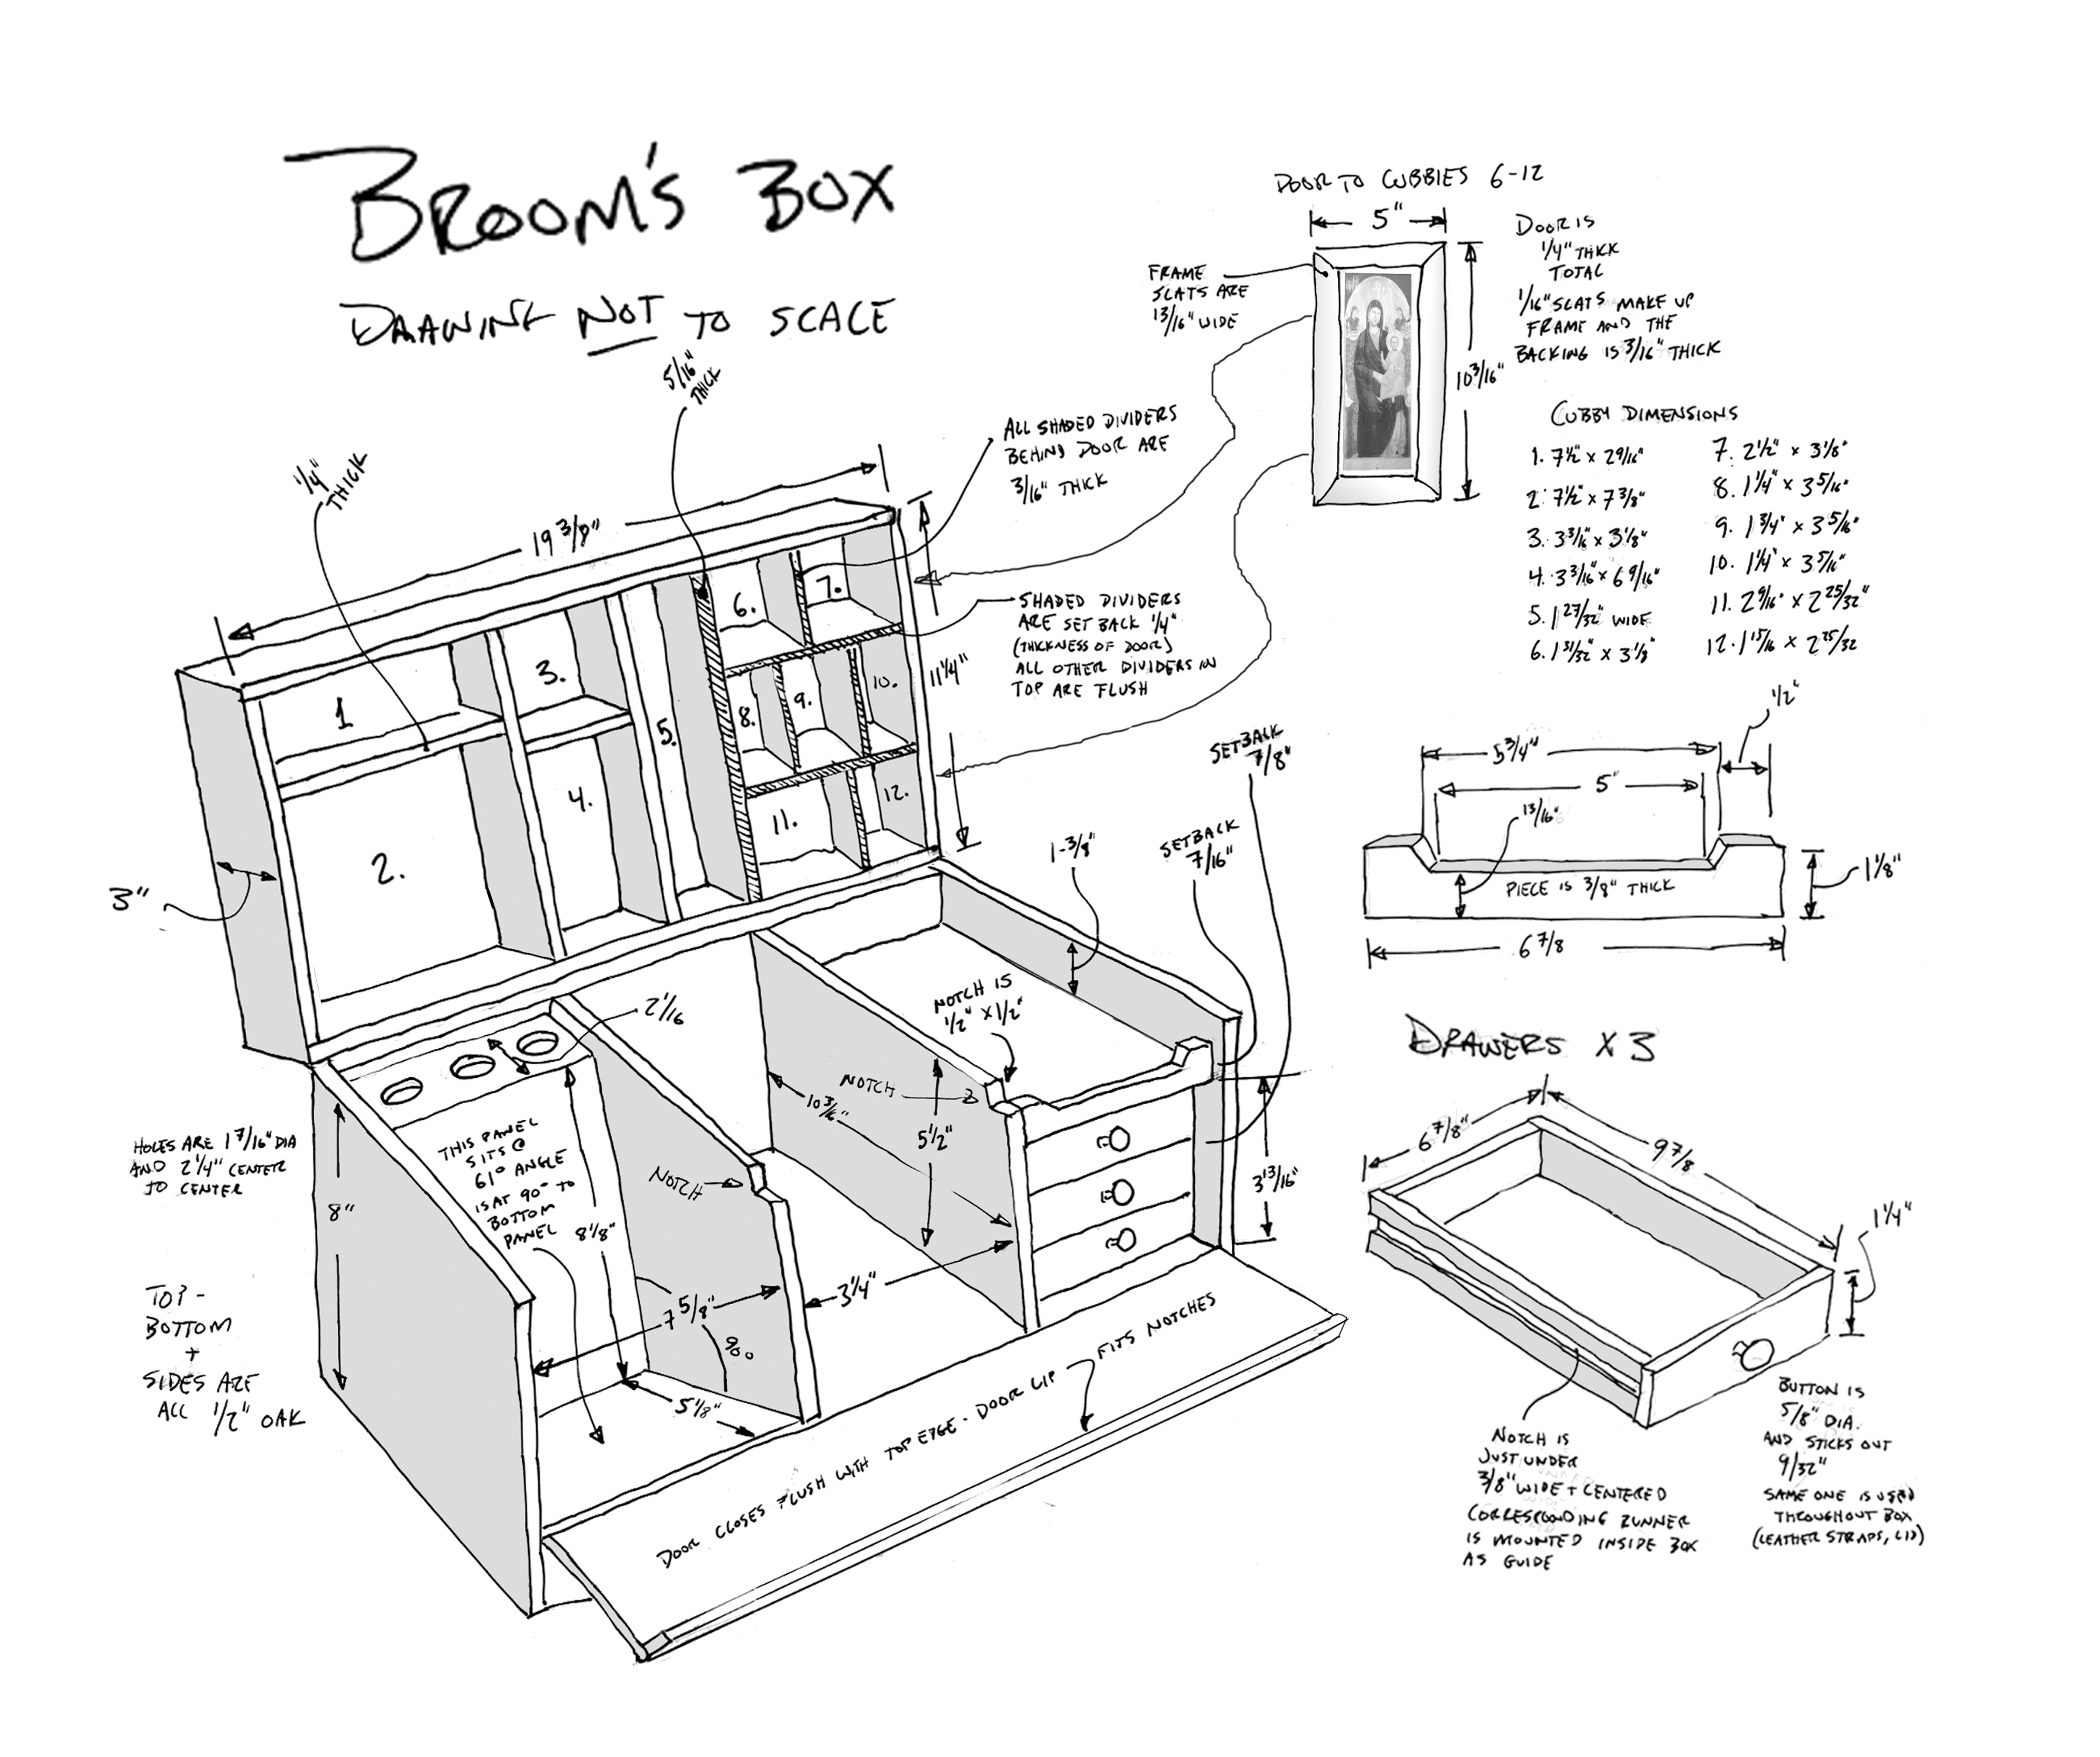 BROOM'S BOX
DRAWING NOT TO SCALE
DOOR TO CUBBIES 6-12
5"
DOOR IS
1/4" THICK
TOTAL
1/16" SLATS MAKE UP
FRAME AND THE
BACKING IS 3/16" THICK
FRAME
SLATS ARE
13/16" WIDE
10 3/16"
CUBBY DIMENSIONS
1. 7 1/2" x 2 9/16"
2. 7 1/2" x 7 3/8"
3. 3 3/16" x 3 1/8"
4. 3 3/16" x 6 9/16"
5. 1 27/32" WIDE
6. 1 31/32" x 3 1/8"
7. 2 1/2" x 3 1/8"
8. 1 1/4" x 3 5/16"
9. 1 3/4" x 3 5/16"
10. 1 1/4" x 3 5/16"
11. 2 9/16" x 2 25/32"
12. 1 15/16 x 2 25/32
5/16"
THICK
1/4"
THICK
19 3/8"
ALL SHADED DIVIDERS
BEHIND DOOR ARE
3/16" THICK
SHADED DIVIDERS
ARE SET BACK 1/4"
(THICKNESS OF DOOR)
ALL OTHER DIVIDERS IN
TOP ARE FLUSH
11 1/4"
1
2.
3.
4.
5.
6.
7.
8.
9.
10.
11.
12.
3"
1-3/8"
SETBACK
7/8"
SETBACK
7/16"
NOTCH IS
1/2" x 1/2"
2 1/16
NOTCH
10 3/16"
5 1/2"
3 13/16"
HOLES ARE 1 7/16" DIA
AND 2 1/4" CENTER
TO CENTER
8"
THIS PANEL
SITS @
61° ANGLE
IS AT 90° TO
BOTTOM
PANEL
8 1/8"
NOTCH
7 5/8"
3 1/4"
90
5 1/8"
TOP -
BOTTOM
+
SIDES ARE
ALL 1/2" OAK
DOOR CLOSES FLUSH WITH TOP EDGE - DOOR LIP FITS NOTCHES
1/2"
5 3/4"
5"
13/16"
PIECE IS 3/8" THICK
1 1/8"
6 7/8
DRAWERS X 3
6 7/8"
9 7/8
1 1/4"
NOTCH IS
JUST UNDER
3/8" WIDE + CENTERED
CORRESPONDING RUNNER
IS MOUNTED INSIDE BOX
AS GUIDE
BUTTON IS
5/8" DIA.
AND STICKS OUT
9/32"
SAME ONE IS USED
THROUGHOUT BOX
(LEATHER STRAPS, LID)